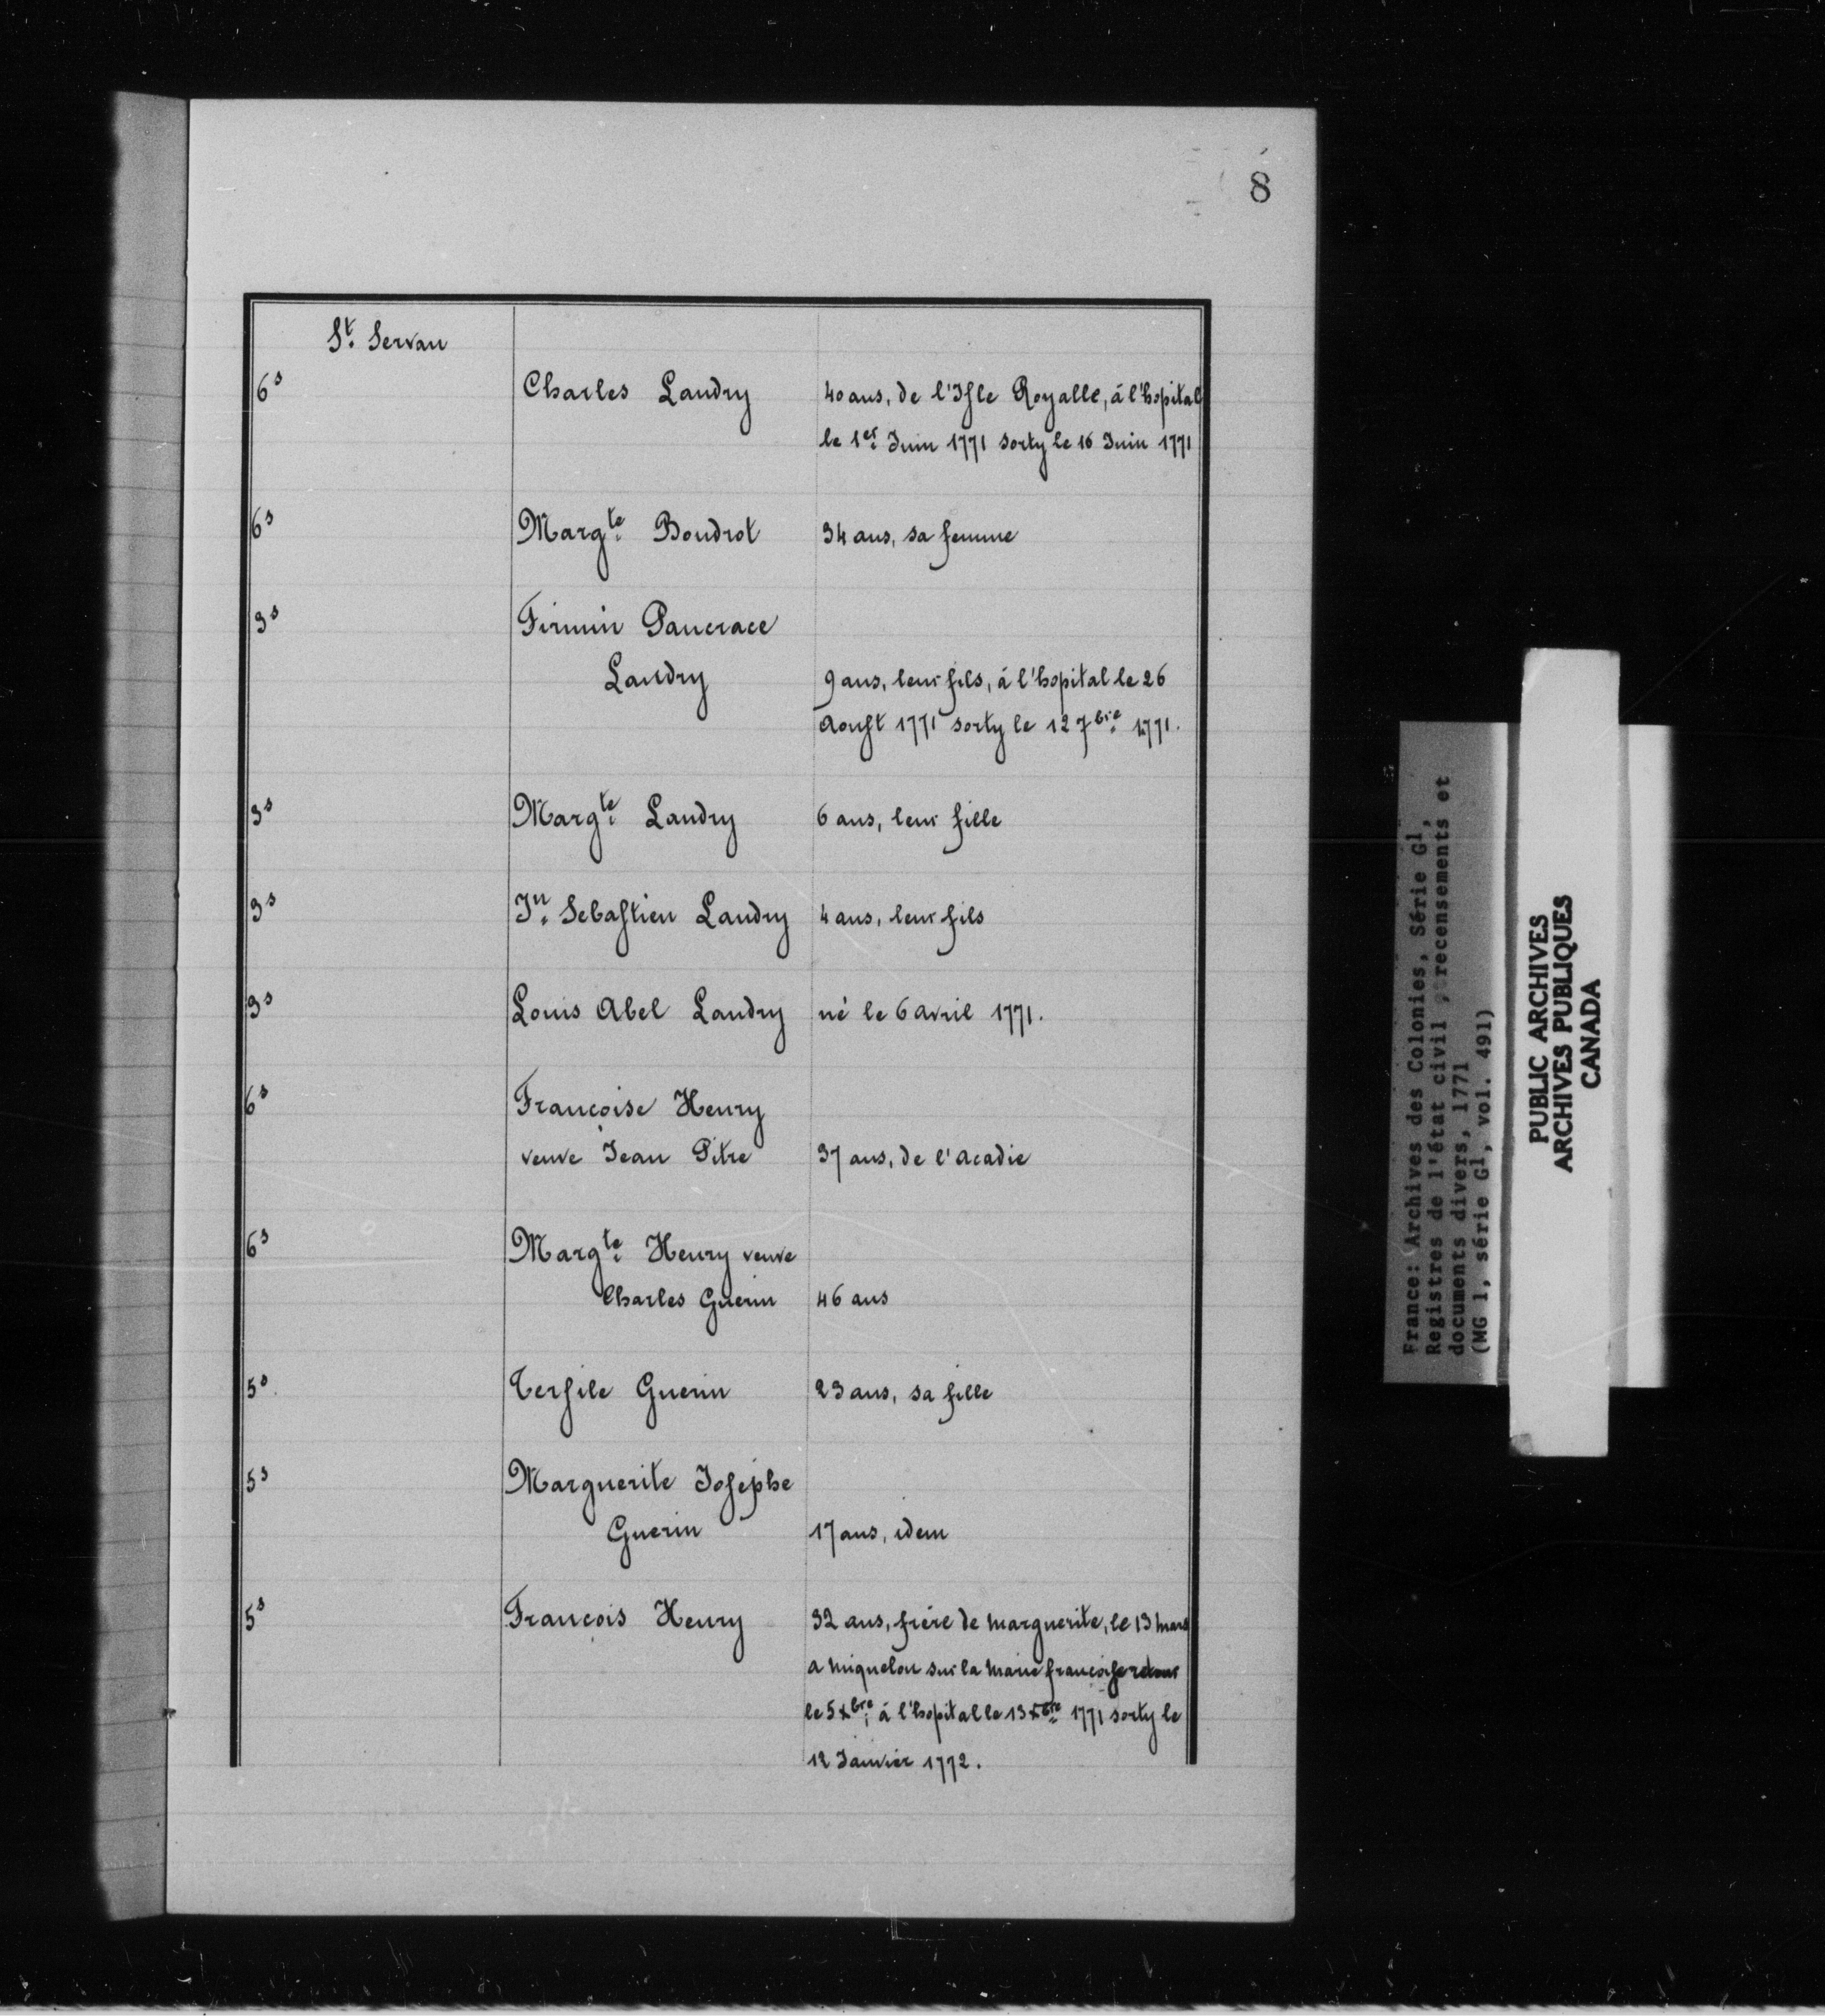 8
St. Servan
6s Charles Landry 40 ans, de l'Isle Royalle, á l'hopital
le 1er Juin 1771 sorty le 16 Juin 1771
6s Margte Boudrot 34 ans, sa femme
3s Firmin Pancrace
Landry 9 ans, leur fils, á l'hopital le 26
Aoust 1771 sorty le 12 7bre 1771.
3s Margte Landry 6 ans, leur fille
3s Jn Sebastien Landry 4 ans, leur fils
3s Louis Abel Landry né le 6 avril 1771.
6s Françoise Henry
veuve Jean Pitre 37 ans, de l'acadie
6s Margte Henry veuve
Charles Guerin 46 ans
5s Tersile Guerin 23 ans, sa fille
5s Marguerite Josephe
Guerin 17 ans, idem
5s François Henry 32 ans, frére de marguerite, le 13 mars
a miquelon sur la marie françoise retour
le 5 xbre, á l'hopital le 13 xbre 1771 sorty le
12 Janvier 1772.
France: Archives des Colonies, Série G1,
Registres de l'état civil, recensements et
documents divers, 1771
(MG 1, série G1, vol. 491)
PUBLIC ARCHIVES
ARCHIVES PUBLIQUES
CANADA